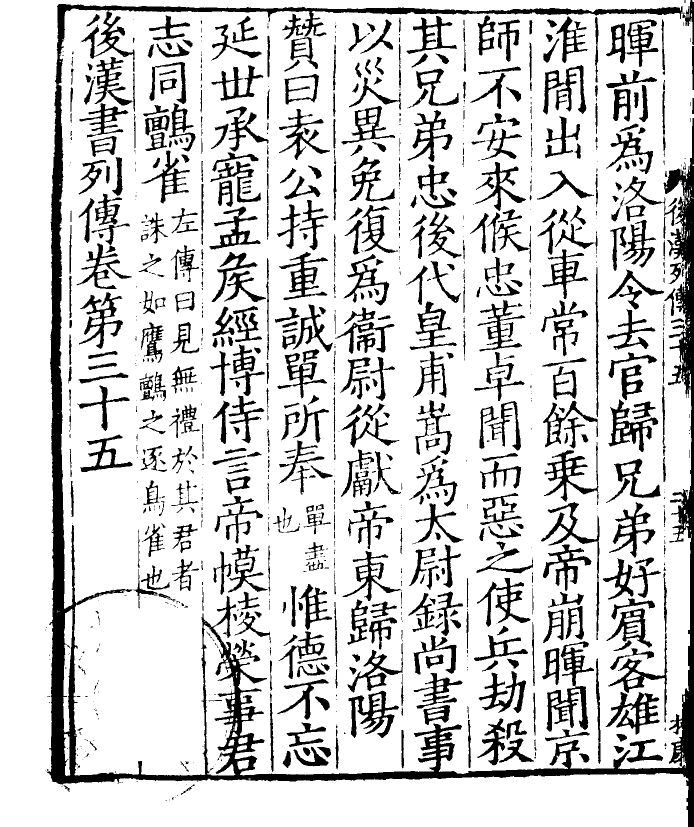 暉前爲洛陽令去官歸兄弟好賓客雄江
淮閒出入從車常百餘乗及帝崩暉聞京
師不安來候忠董卓聞而惡之使兵劫殺
其兄弟忠後代皇甫嵩爲太尉録尚書事
以災異免復爲衞尉從獻帝東歸洛陽
贊曰袁公持重誠單所奉單盡也惟德不忘
延世承寵孟侯經博侍言帝幙棱榮事君
志同鸇雀左傳曰見無禮於其君者誅之如鷹鸇之逐鳥雀也
後漢書列傳卷第三十五
後漢列傳三十五